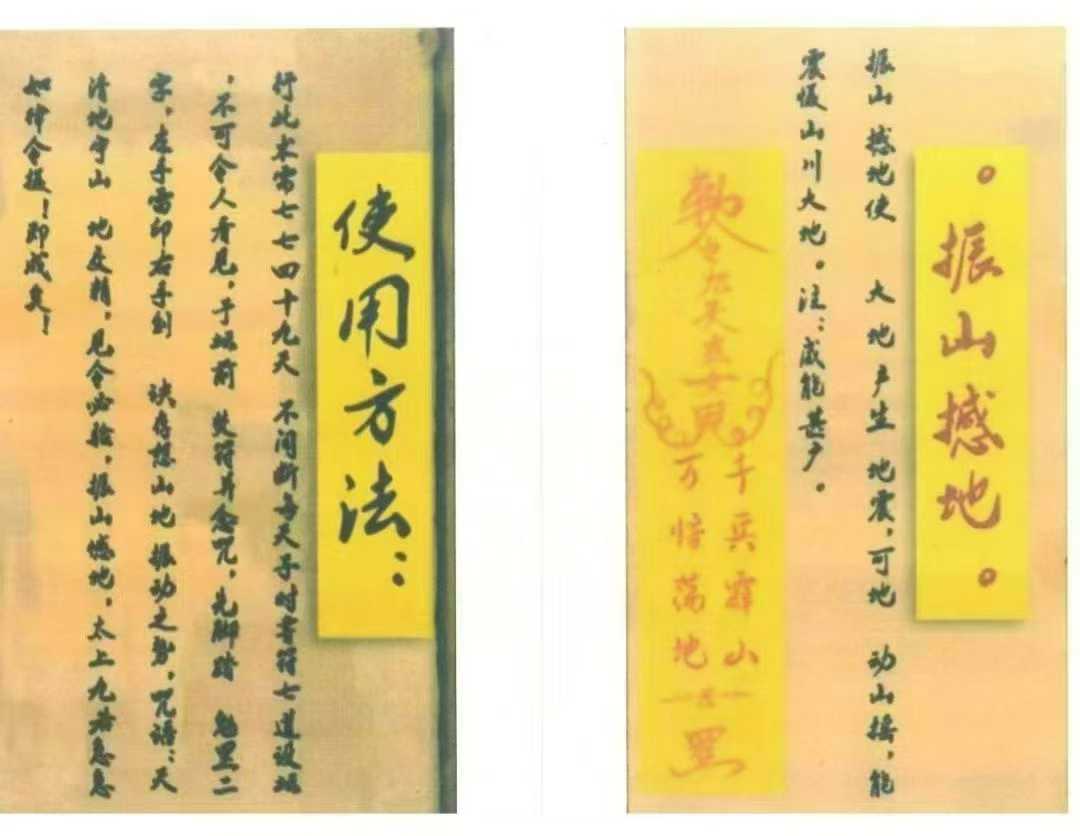 。振山撼地。
振山 撼地使 大地产生 地震，可地 动山摇，能
震 山川大地。注：威能甚广。
勅令九天
千兵霹山
万 荡地
罡
使用方法：
行此术需七七四十九天 不间断每天子时书符七道设坛
，不可令人看见，于坛前 焚符并念咒，先脚踏 魁罡二
字，左手雷印右手剑 诀存想山地 振动之势，咒语：天
清地宁山 地 精，见令必验，振山憾地，太上老君急急
如律令摄！即成矣！